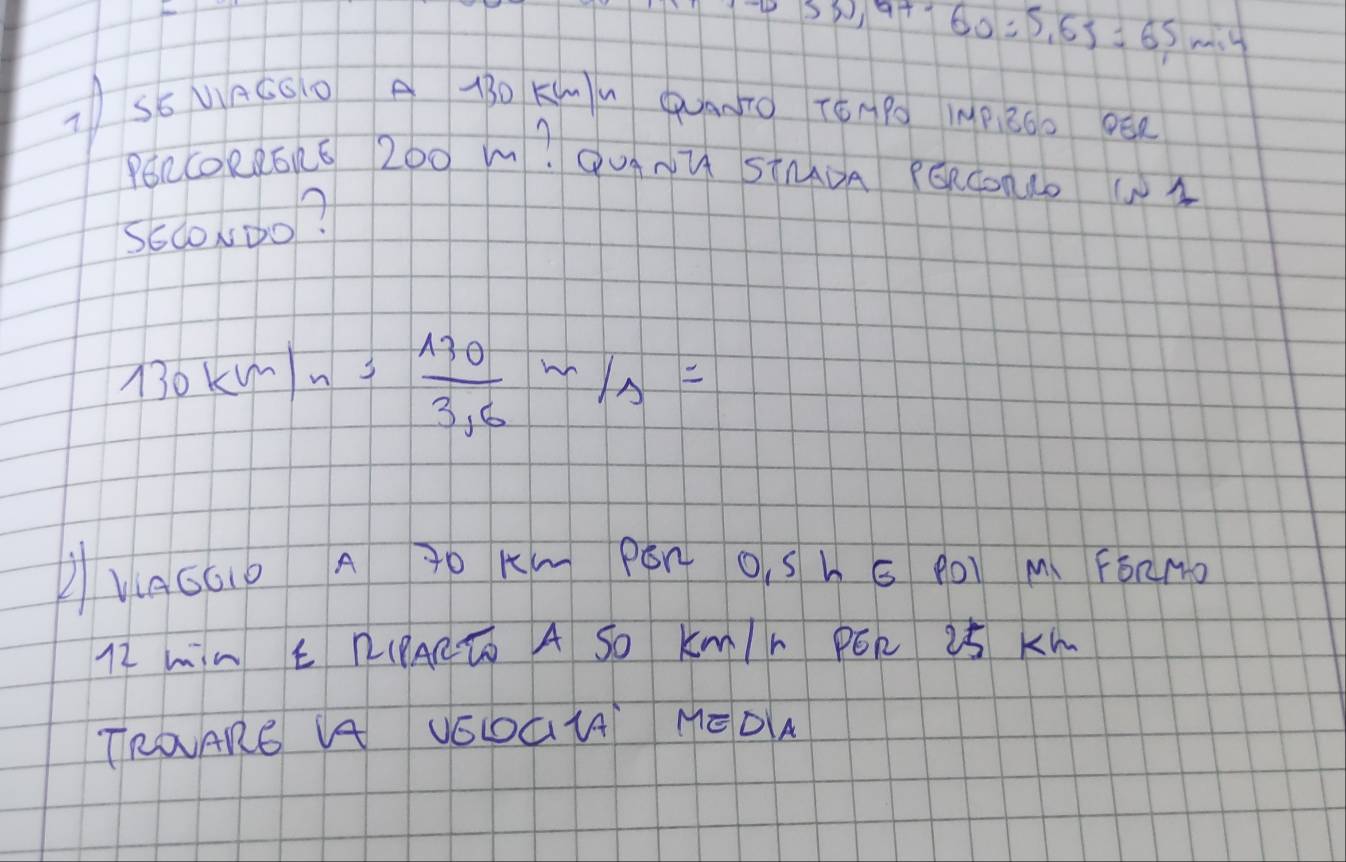 60 = 5,63 = 65 min
1) SE VIAGGIO A 130 Km/h QUANTO TEMPO IMPIEGO PER
PERCORRERE 200 m? QUANTA STRADA PERCORRO IN 1
SECONDO?
130 km/h = 130/3,6 m/s =
2) VIAGGIO A 70 Km PER 0,5 h E POI MI FERMO
12 min E RIPARTO A 50 km/h PER 25 Km
TROVARE LA VELOCITA' MEDIA